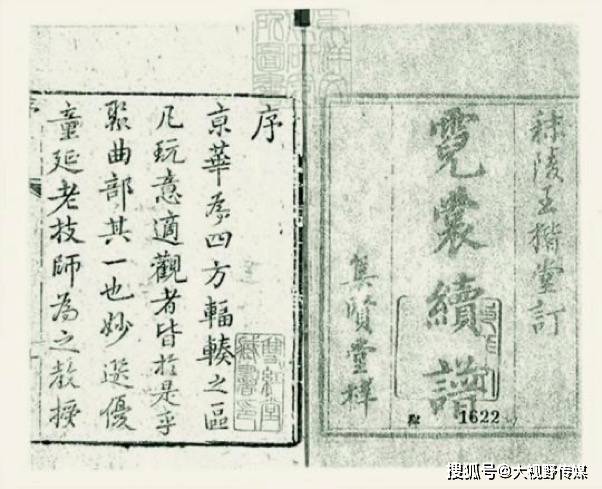 秣陵王楷堂訂
霓裳續譜
集賢堂梓
1622
序
京華為四方輻輳之區
凡玩意適觀者皆於是乎
聚曲部其一也妙選優
童延老技師為之教授
搜狐号@大视野传媒